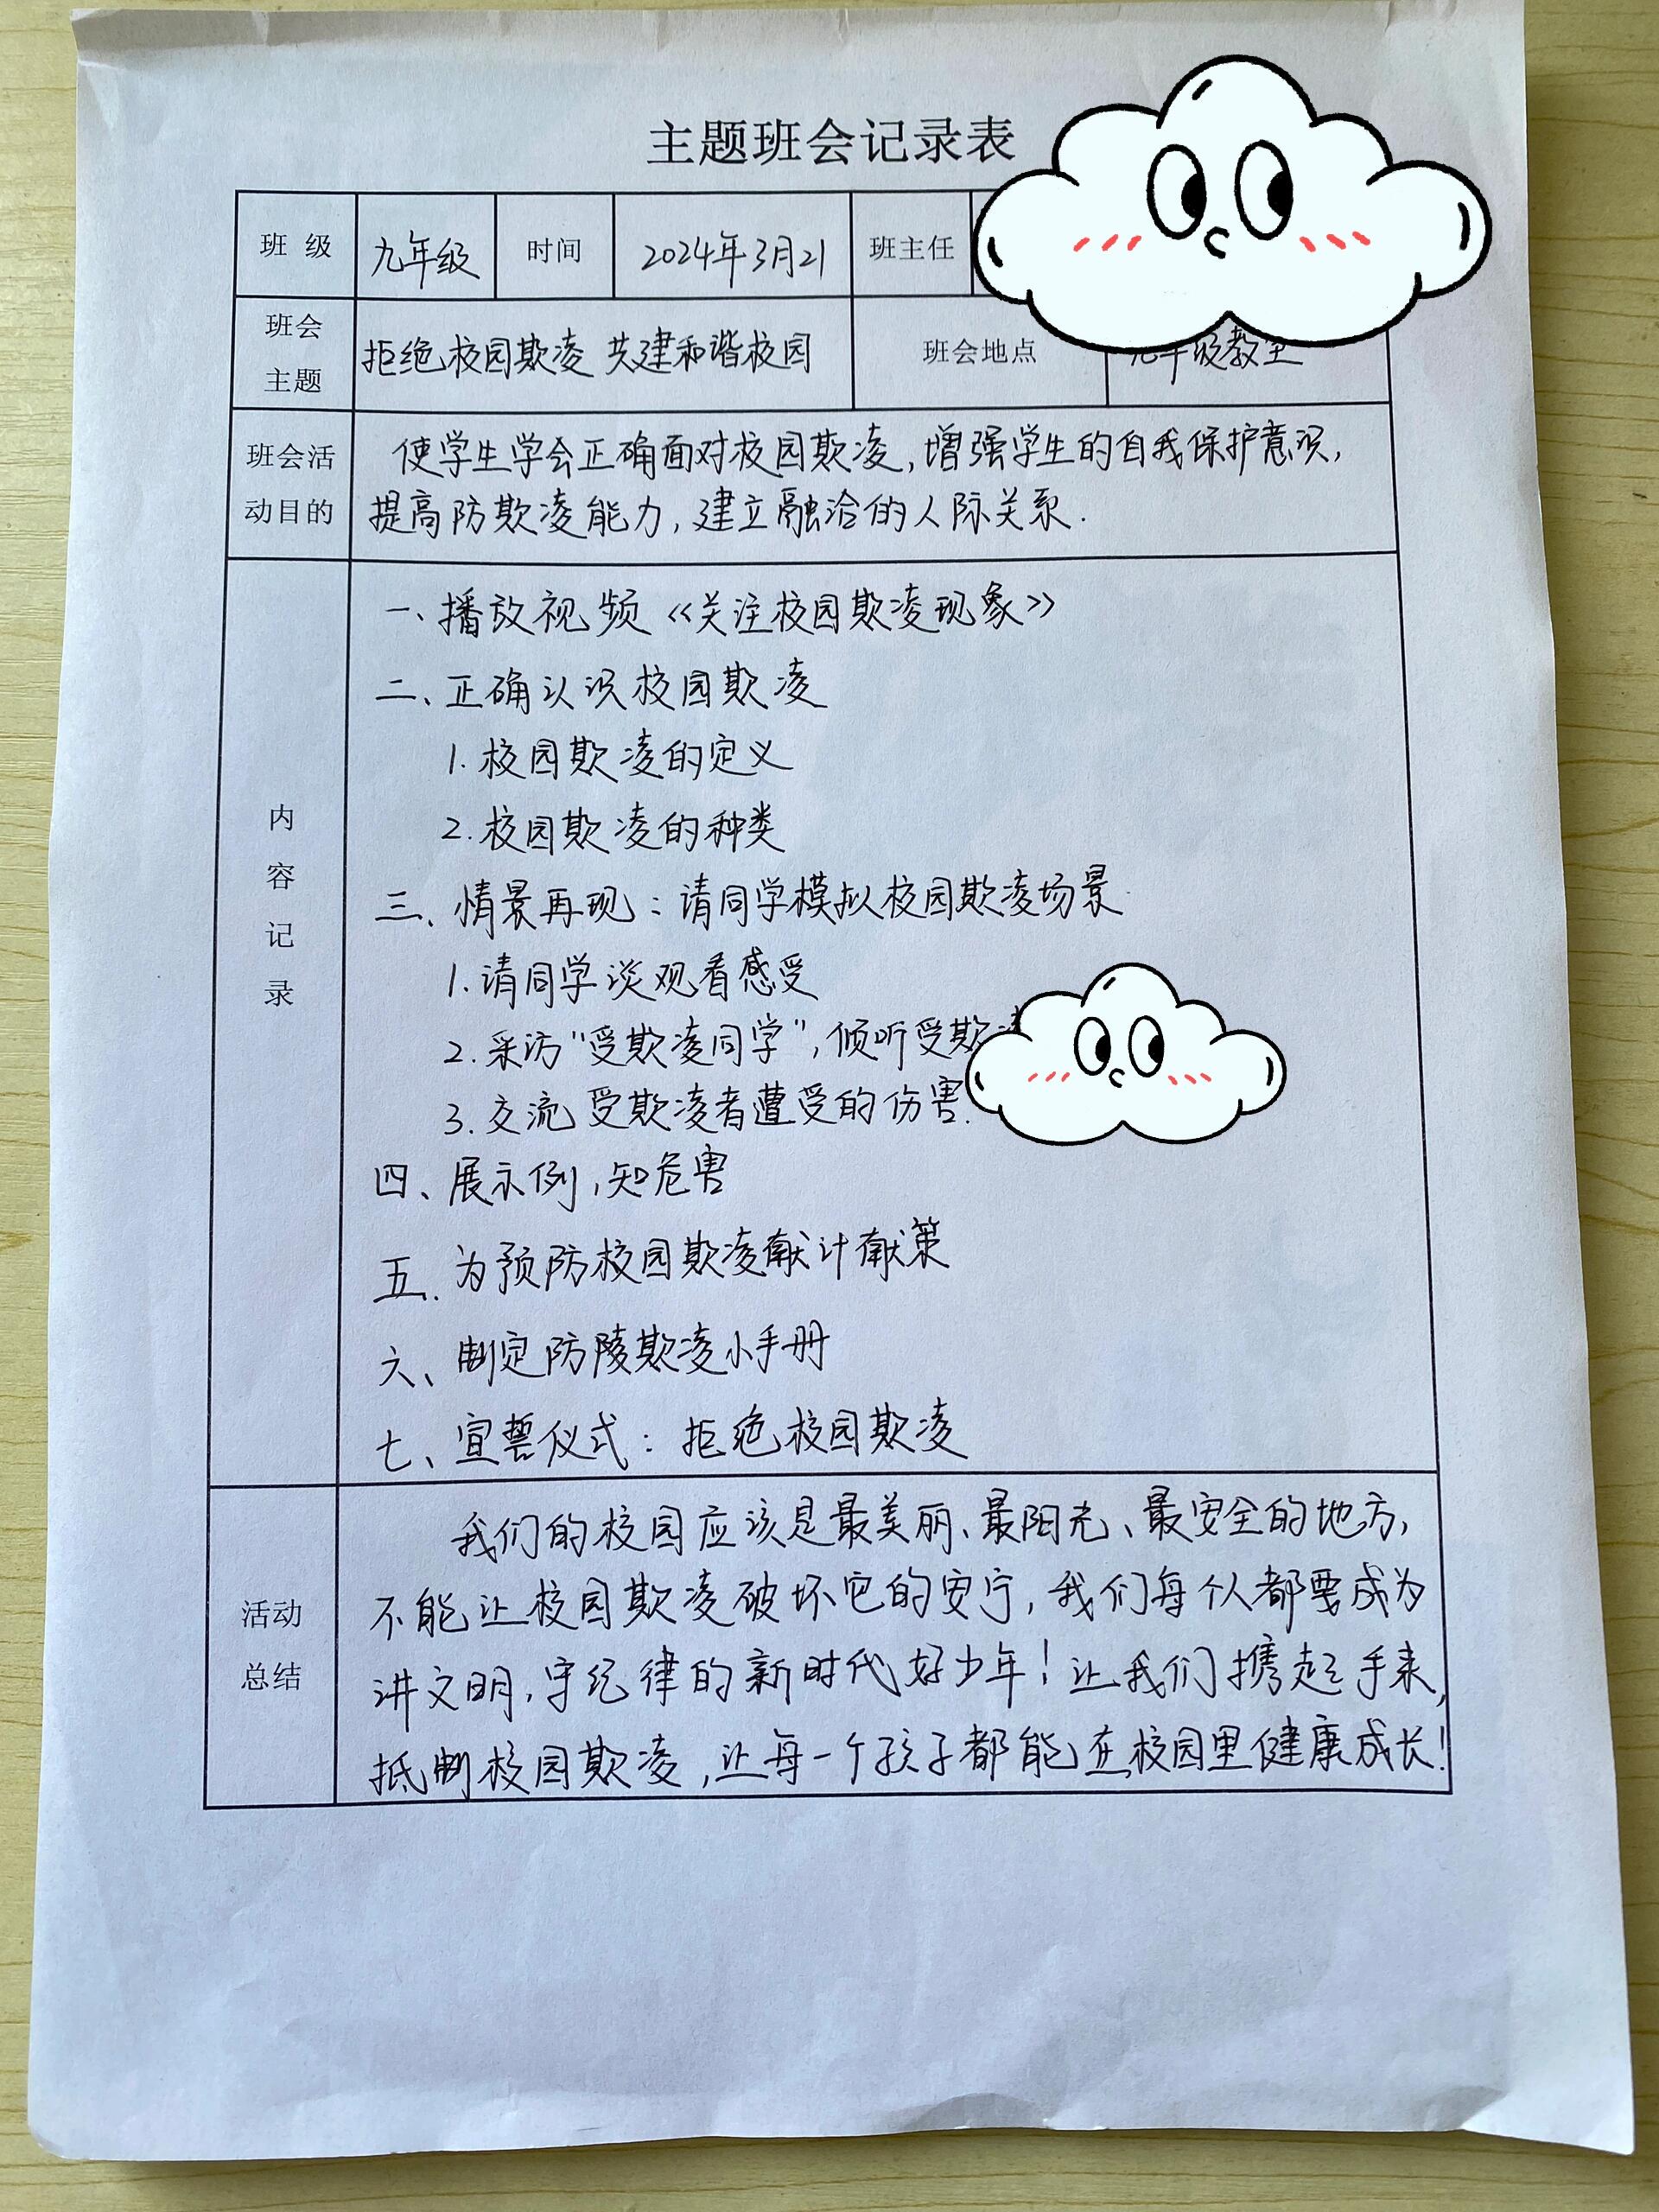 主题班会记录表
班 级 九年级 时间 2024年3月21 班主任
班会主题 拒绝校园欺凌 共建和谐校园 班会地点 九年级教室
班会活动目的
使学生学会正确面对校园欺凌,增强学生的自我保护意识,
提高防欺凌能力,建立融洽的人际关系.
内容记录
一、播放视频《关注校园欺凌现象》
二、正确认识校园欺凌
1.校园欺凌的定义
2.校园欺凌的种类
三、情景再现:请同学模拟校园欺凌场景
1.请同学谈观看感受
2.采访"受欺凌同学",倾听受欺
3.交流受欺凌者遭受的伤害.
四、展示例,知危害
五.为预防校园欺凌献计献策
六、制定防陵欺凌小手册
七、宣誓仪式:拒绝校园欺凌
活动总结
我们的校园应该是最美丽、最阳光、最安全的地方,
不能让校园欺凌破坏它的安宁,我们每个人都要成为
讲文明,守纪律的新时代好少年!让我们携起手来,
抵制校园欺凌,让每一个孩子都能在校园里健康成长!